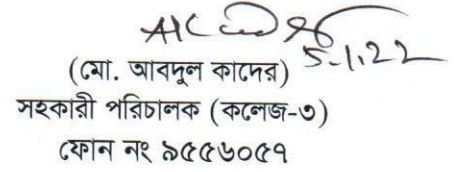 5.1.22
(মো. আবদুল কাদের)
সহকারী পরিচালক (কলেজ-৩)
ফোন নং ৯৫৫৬০৫৭